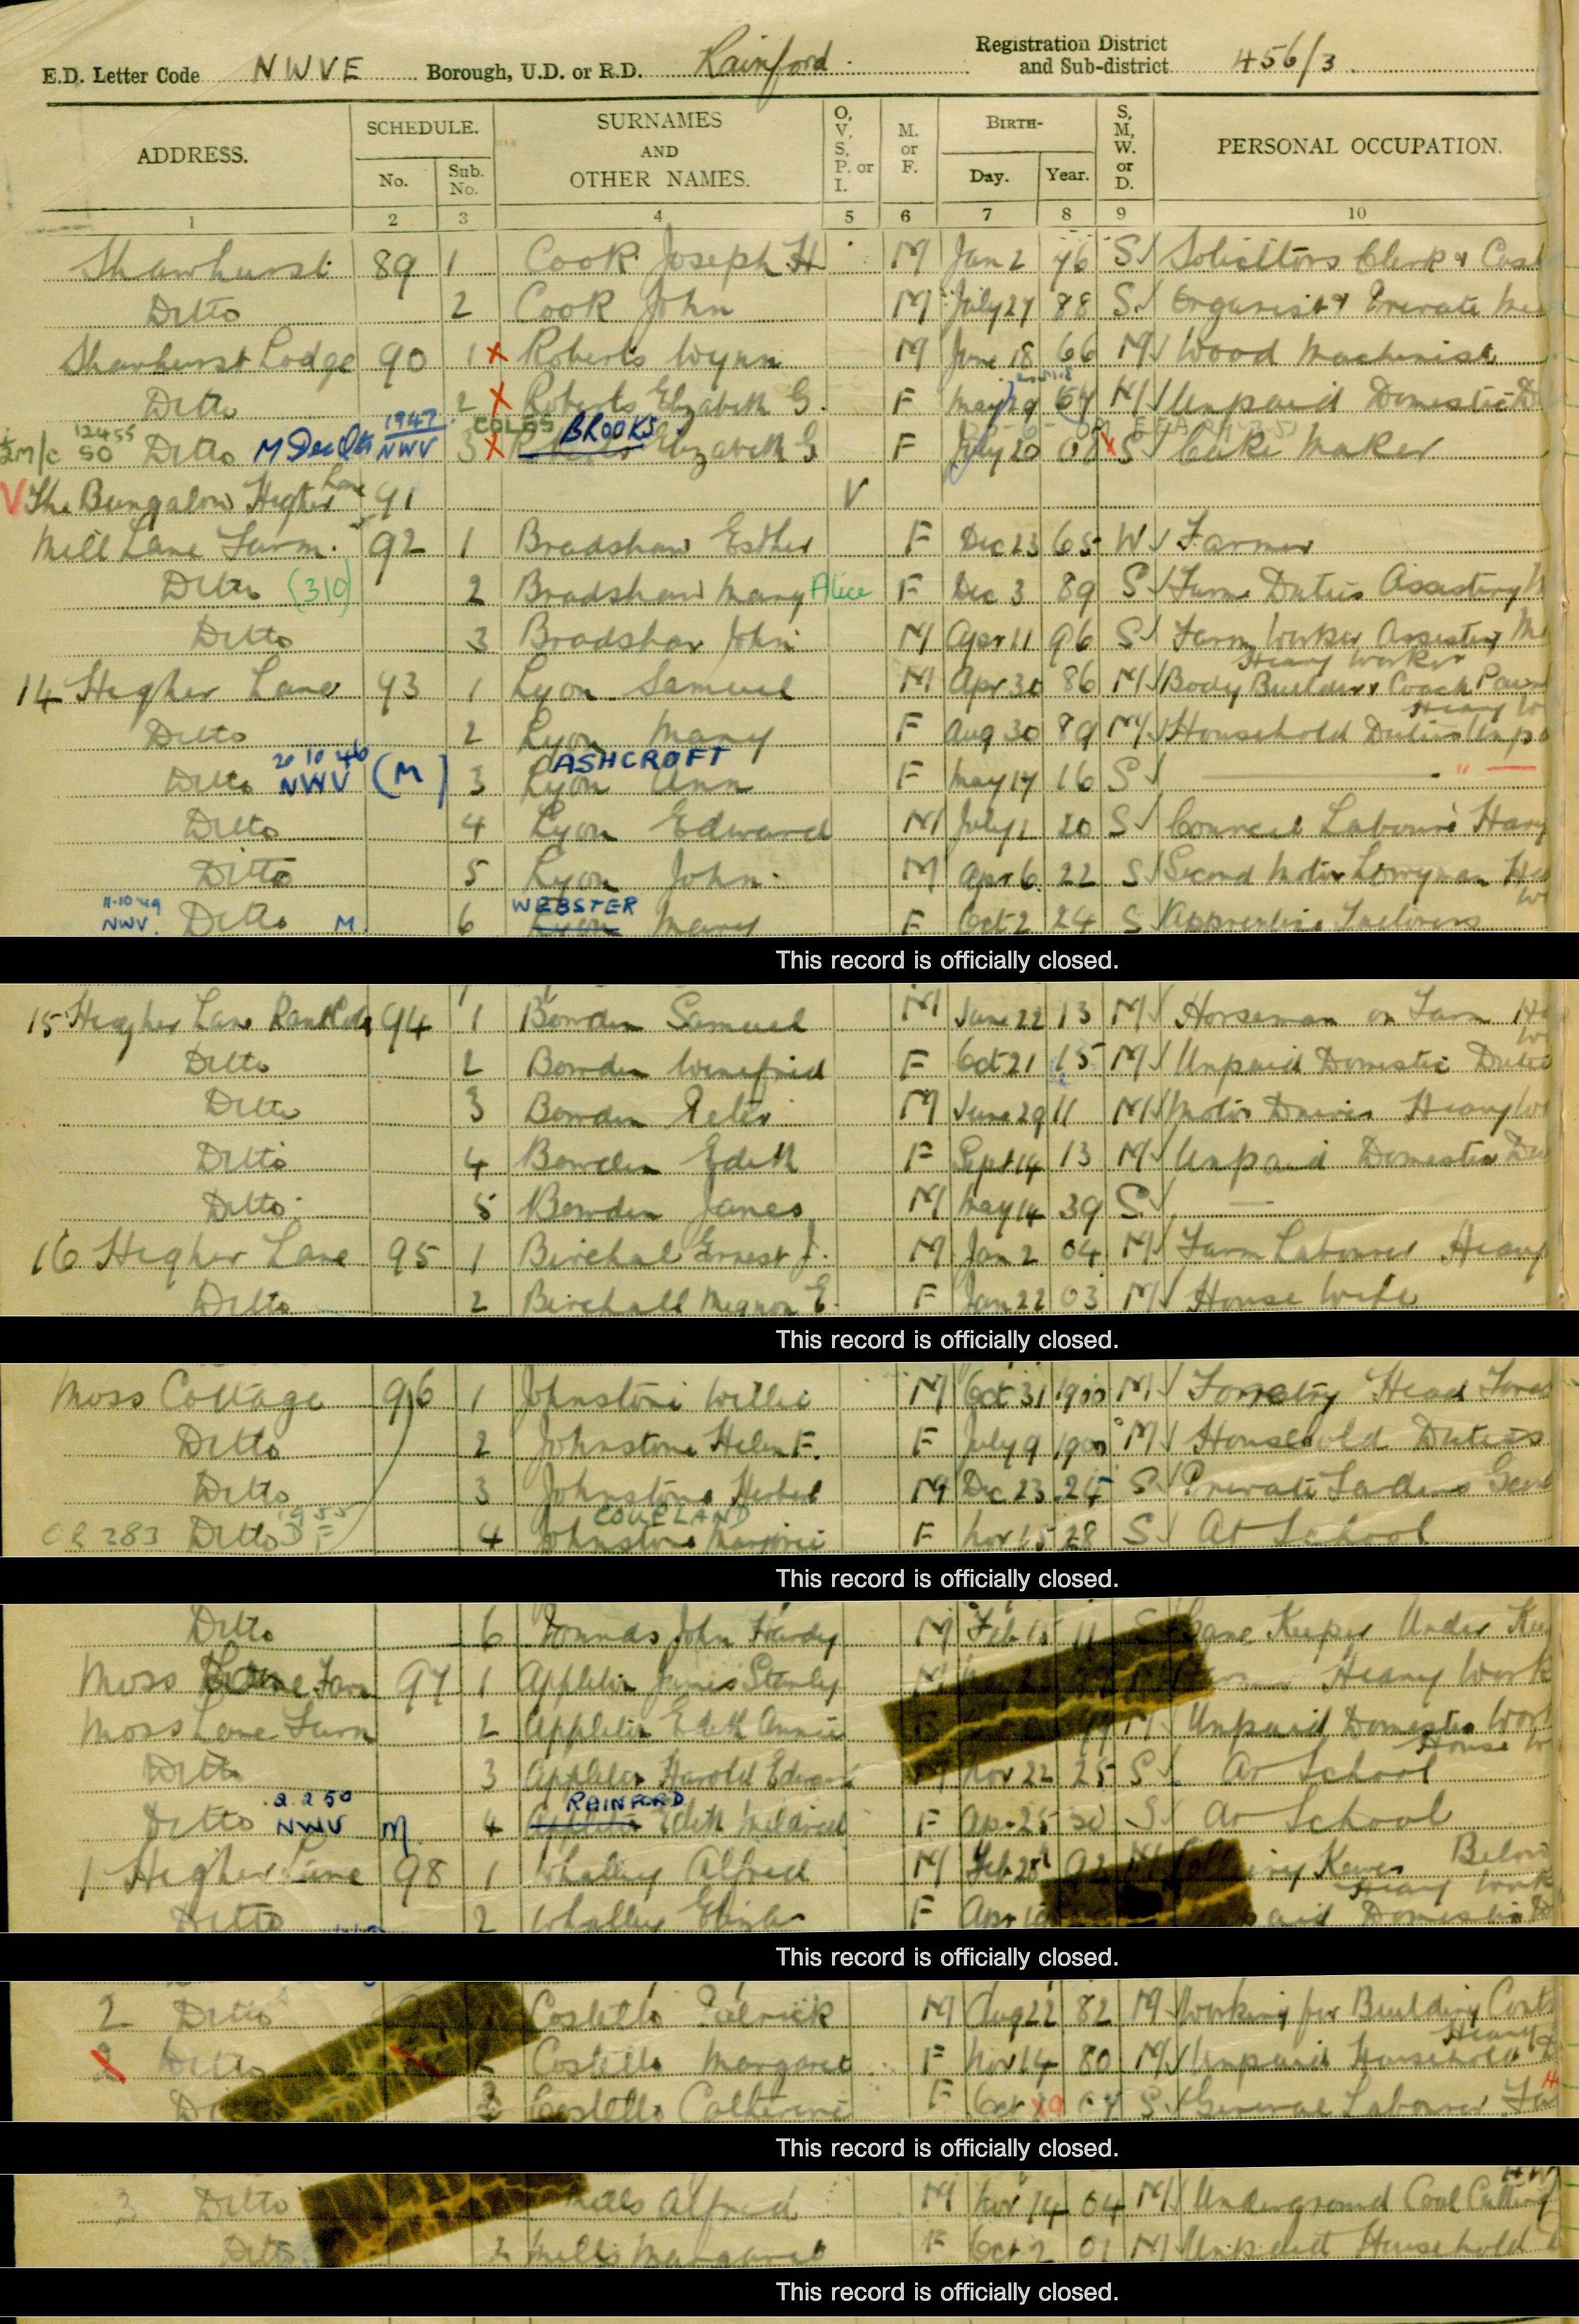 E.D. Letter Code NWVE Borough, U.D. or R.D. Rainford Registration District and Sub-district 456/3
ADDRESS. SCHEDULE. No. Sub. No. SURNAMES AND OTHER NAMES. O, V, S, P. or I. M. or F. BIRTH- Day. Year. S, M, W. or D. PERSONAL OCCUPATION.
1 2 3 4 5 6 7 8 9 10
Shawhurst 89 1 Cook Joseph H M Jan 2 76 S Solicitors Clerk &
Ditto 2 Cook John M July 27 88 S Organist & Private
Shawhurst Lodge 90 1 Roberts Wynn M June 18 66 M Wood Machinist
Ditto 2 Roberts Elizabeth G. F May 29 67 M Unpaid Domestic D
12455 1947 COLES BROOKS
SO Ditto NWV 3 Elizabeth G F July 20 08 S Cake Maker
V The Bungalow Higher Lane 91 V
Mill Lane Farm 92 1 Bradshaw Esther F Dec 23 65 W Farmer
Ditto (310) 2 Bradshaw Mary Alice F Dec 3 89 S Farm Duties Assisting
Ditto 3 Bradshaw John M Apr 11 96 S Farm Worker Assisting
Heavy Worker
14 Higher Lane 93 1 Lyon Samuel M Apr 30 86 M Body Builder & Coach
Ditto 2 Lyon Mary F Aug 30 89 M Household Duties Unp
20 10 46 ASHCROFT
Ditto NWV (M) 3 Lyon Ann F May 17 16 S
Ditto 4 Lyon Edward M July 1 20 S Council Labourer Heavy
Ditto 5 Lyon John M Apr 6 22 S Second Motor Lorryman
11-10-49 WEBSTER
NWV. Ditto M. 6 Lyon Mary F Oct 2 24 S Apprentice
This record is officially closed.
15 Higher Lane 94 1 Bowden Samuel M June 22 13 M Horseman on Farm
Ditto 2 Bowden Winefrid F Oct 21 15 M Unpaid Domestic Duties
Ditto 3 Bowden Peter M June 29 11 M Motor Driver Heavy
Ditto 4 Bowden Edith F Sept 14 13 M Unpaid Domestic
Ditto 5 Bowden James M May 14 39 S
16 Higher Lane 95 1 Birchal Ernest J. M Jan 2 04 M Farm Labourer Heavy
Ditto 2 Birchall Mignon E. F Jan 22 03 M House Wife
This record is officially closed.
Moss Cottage 96 1 Johnstone Willie M Oct 31 1900 M Forestry Head
Ditto 2 Johnstone Helen F. F July 9 1900 M Household Duties
Ditto 3 Johnstone Herbert M Dec 23 24 S Private Gardens
COUPLAND
CR 283 Ditto 4 Johnstone Marjorie F Nov 15 28 S At School
This record is officially closed.
Ditto 6 Pounds John Hardy M Feb 15 11 S Game Keeper Under
Moss Lane Farm 97 1 Appleton James Stanley Heavy Work
Moss Lane Farm 2 Appleton Edith Annie M Unpaid Domestic Work
Ditto 3 Appleton Harold Edward Nov 22 25 S At School
2.2.50 RAINFORD
Ditto NWV M. 4 Appleton Edith Mildred F Apr 25 30 S At School
1 Higher Lane 98 1 Whalley Alfred M Feb 28 92 M Hewer Below
Heavy Work
Ditto 2 Whalley F Apr Domestic
This record is officially closed.
2 Ditto Costello Patrick M Aug 22 82 M Working for Building
2 Ditto Costello Margaret F Nov 14 80 M Unpaid Household
3 Costello Catherine F Oct 07 S General Labourer
This record is officially closed.
3 Ditto Mills Alfred M Nov 14 04 M Underground Coal Cutting
Ditto 2 Mills Margaret F Oct 2 01 M Unpaid Household
This record is officially closed.